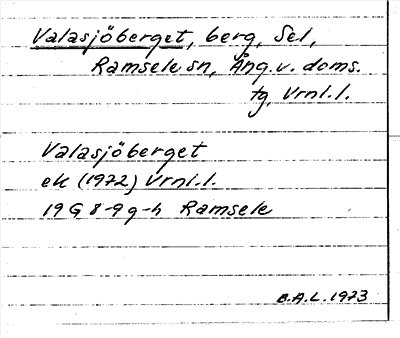 Valasjöberget, berg, Sel,
Ramsele sn, Ång.v. doms.
tg, Vrnl.l.
Valasjöberget
ek (1972) Vrnl.l.
19 G 8-9 g-h Ramsele
B.A.L. 1973